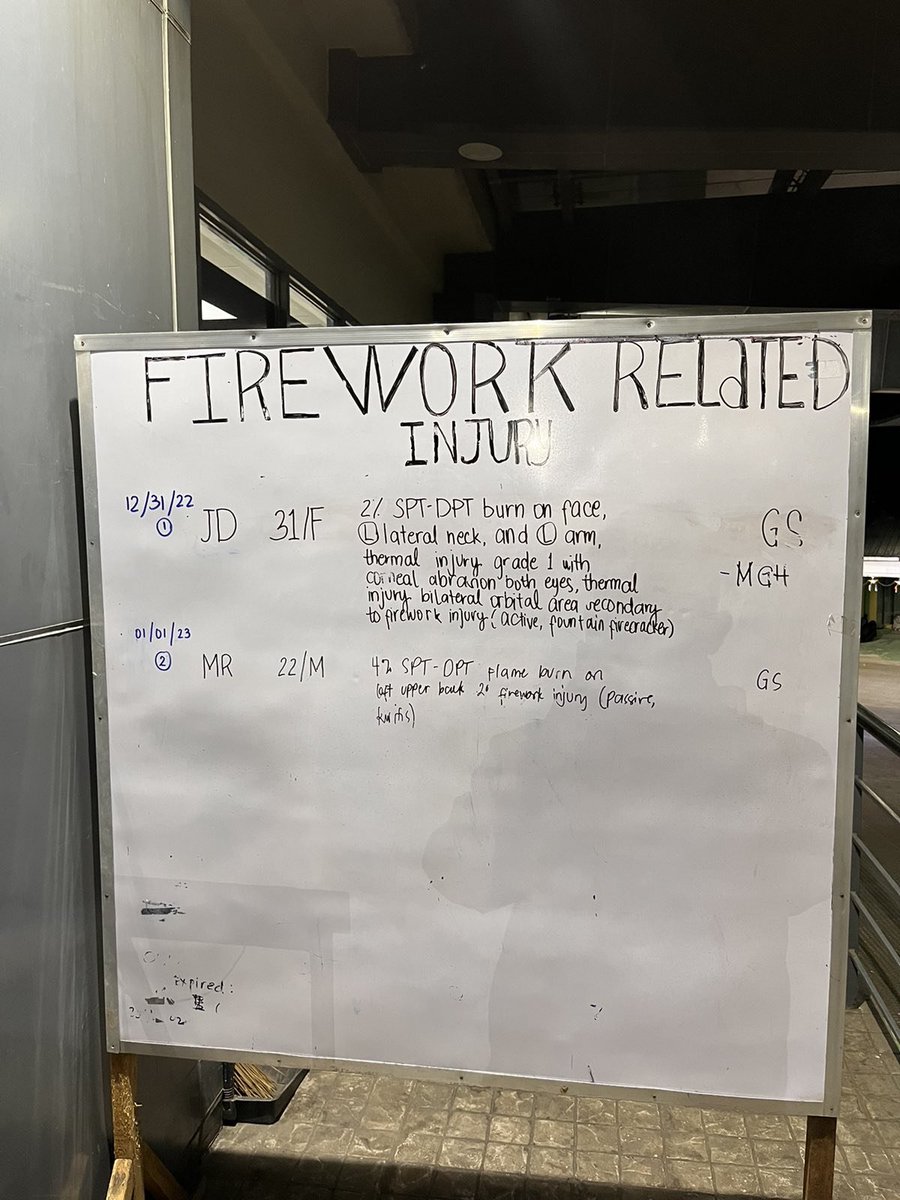 FIREWORK RELATED
INJURY
12/31/22
① JD 31/F 2% SPT-DPT burn on face, GS
Ⓛ lateral neck, and Ⓛ arm,
thermal injury grade 1 with -MGH
corneal abrasion both eyes, thermal
injury bilateral orbital area secondary
to firework injury (active, fountain firecracker)
01/01/23
② MR 22/M 4% SPT-DPT flame burn on GS
left upper back 2° firework injury (passive,
kwitis)
Expired: